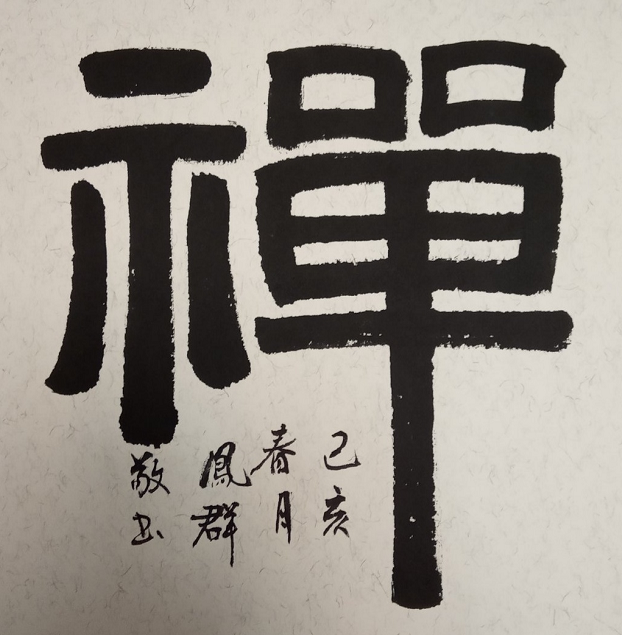 禪
己亥
春月
鳳群
敬书